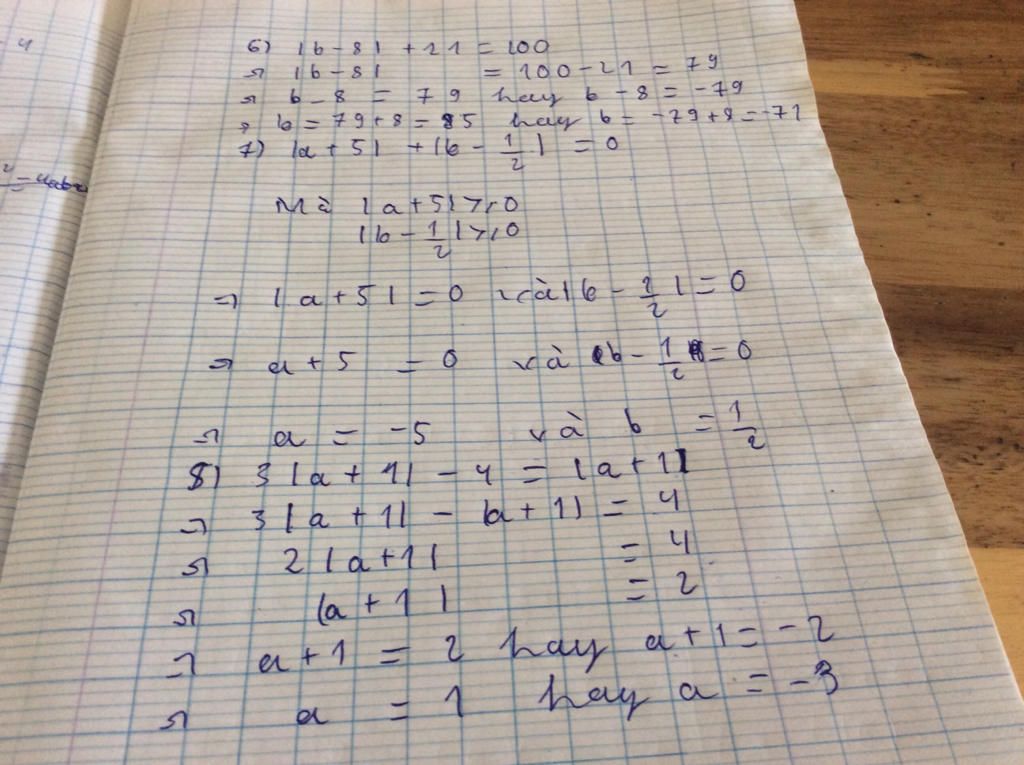 6) |b-8| + 21 = 100
=> |b-8| = 100-21 = 79
=> b-8 = 79 hay b-8 = -79
=> b = 79+8 = 85 hay b = -79+8 = -71
7) |a+5| + |b - 1/2| = 0
Mà |a+5| ≥ 0
|b - 1/2| ≥ 0
=> |a+5| = 0 và |b - 1/2| = 0
=> a+5 = 0 và b - 1/2 = 0
=> a = -5 và b = 1/2
8) 3|a+1| - 4 = |a+1|
=> 3|a+1| - |a+1| = 4
=> 2|a+1| = 4
=> |a+1| = 2
=> a+1 = 2 hay a+1 = -2
=> a = 1 hay a = -3